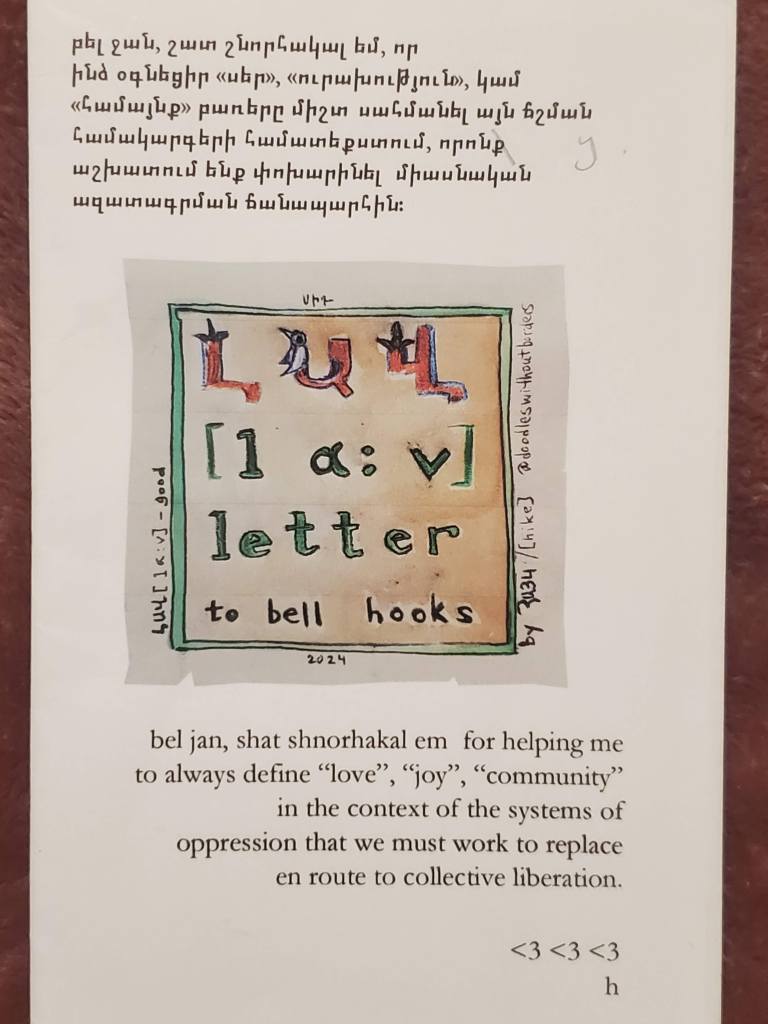 բել ջան, շատ շնորհակալ եմ, որ
ինձ օգնեցիր «սեր», «ուրախություն», կամ
«համայնք» բառերը միշտ սահմանել այն ճշման
համակարգերի համատեքստում, որոնք
աշխատում ենք փոխարինել միասնական
ազատագրման ճանապարհին:
սիր
ԼԱՎ
[l ɑ: v]
letter
to bell hooks
ԼԱՎ [l ɑ: v] – good
by Հայկ /[hike] @doodleswithoutborders
2024
bel jan, shat shnorhakal em for helping me
to always define “love”, “joy”, “community”
in the context of the systems of
oppression that we must work to replace
en route to collective liberation.
<3 <3 <3
h